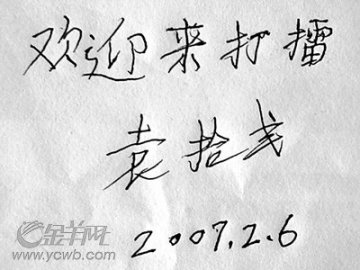 欢迎来打擂
袁拾
2007.2.6
金羊网
www.ycwb.com